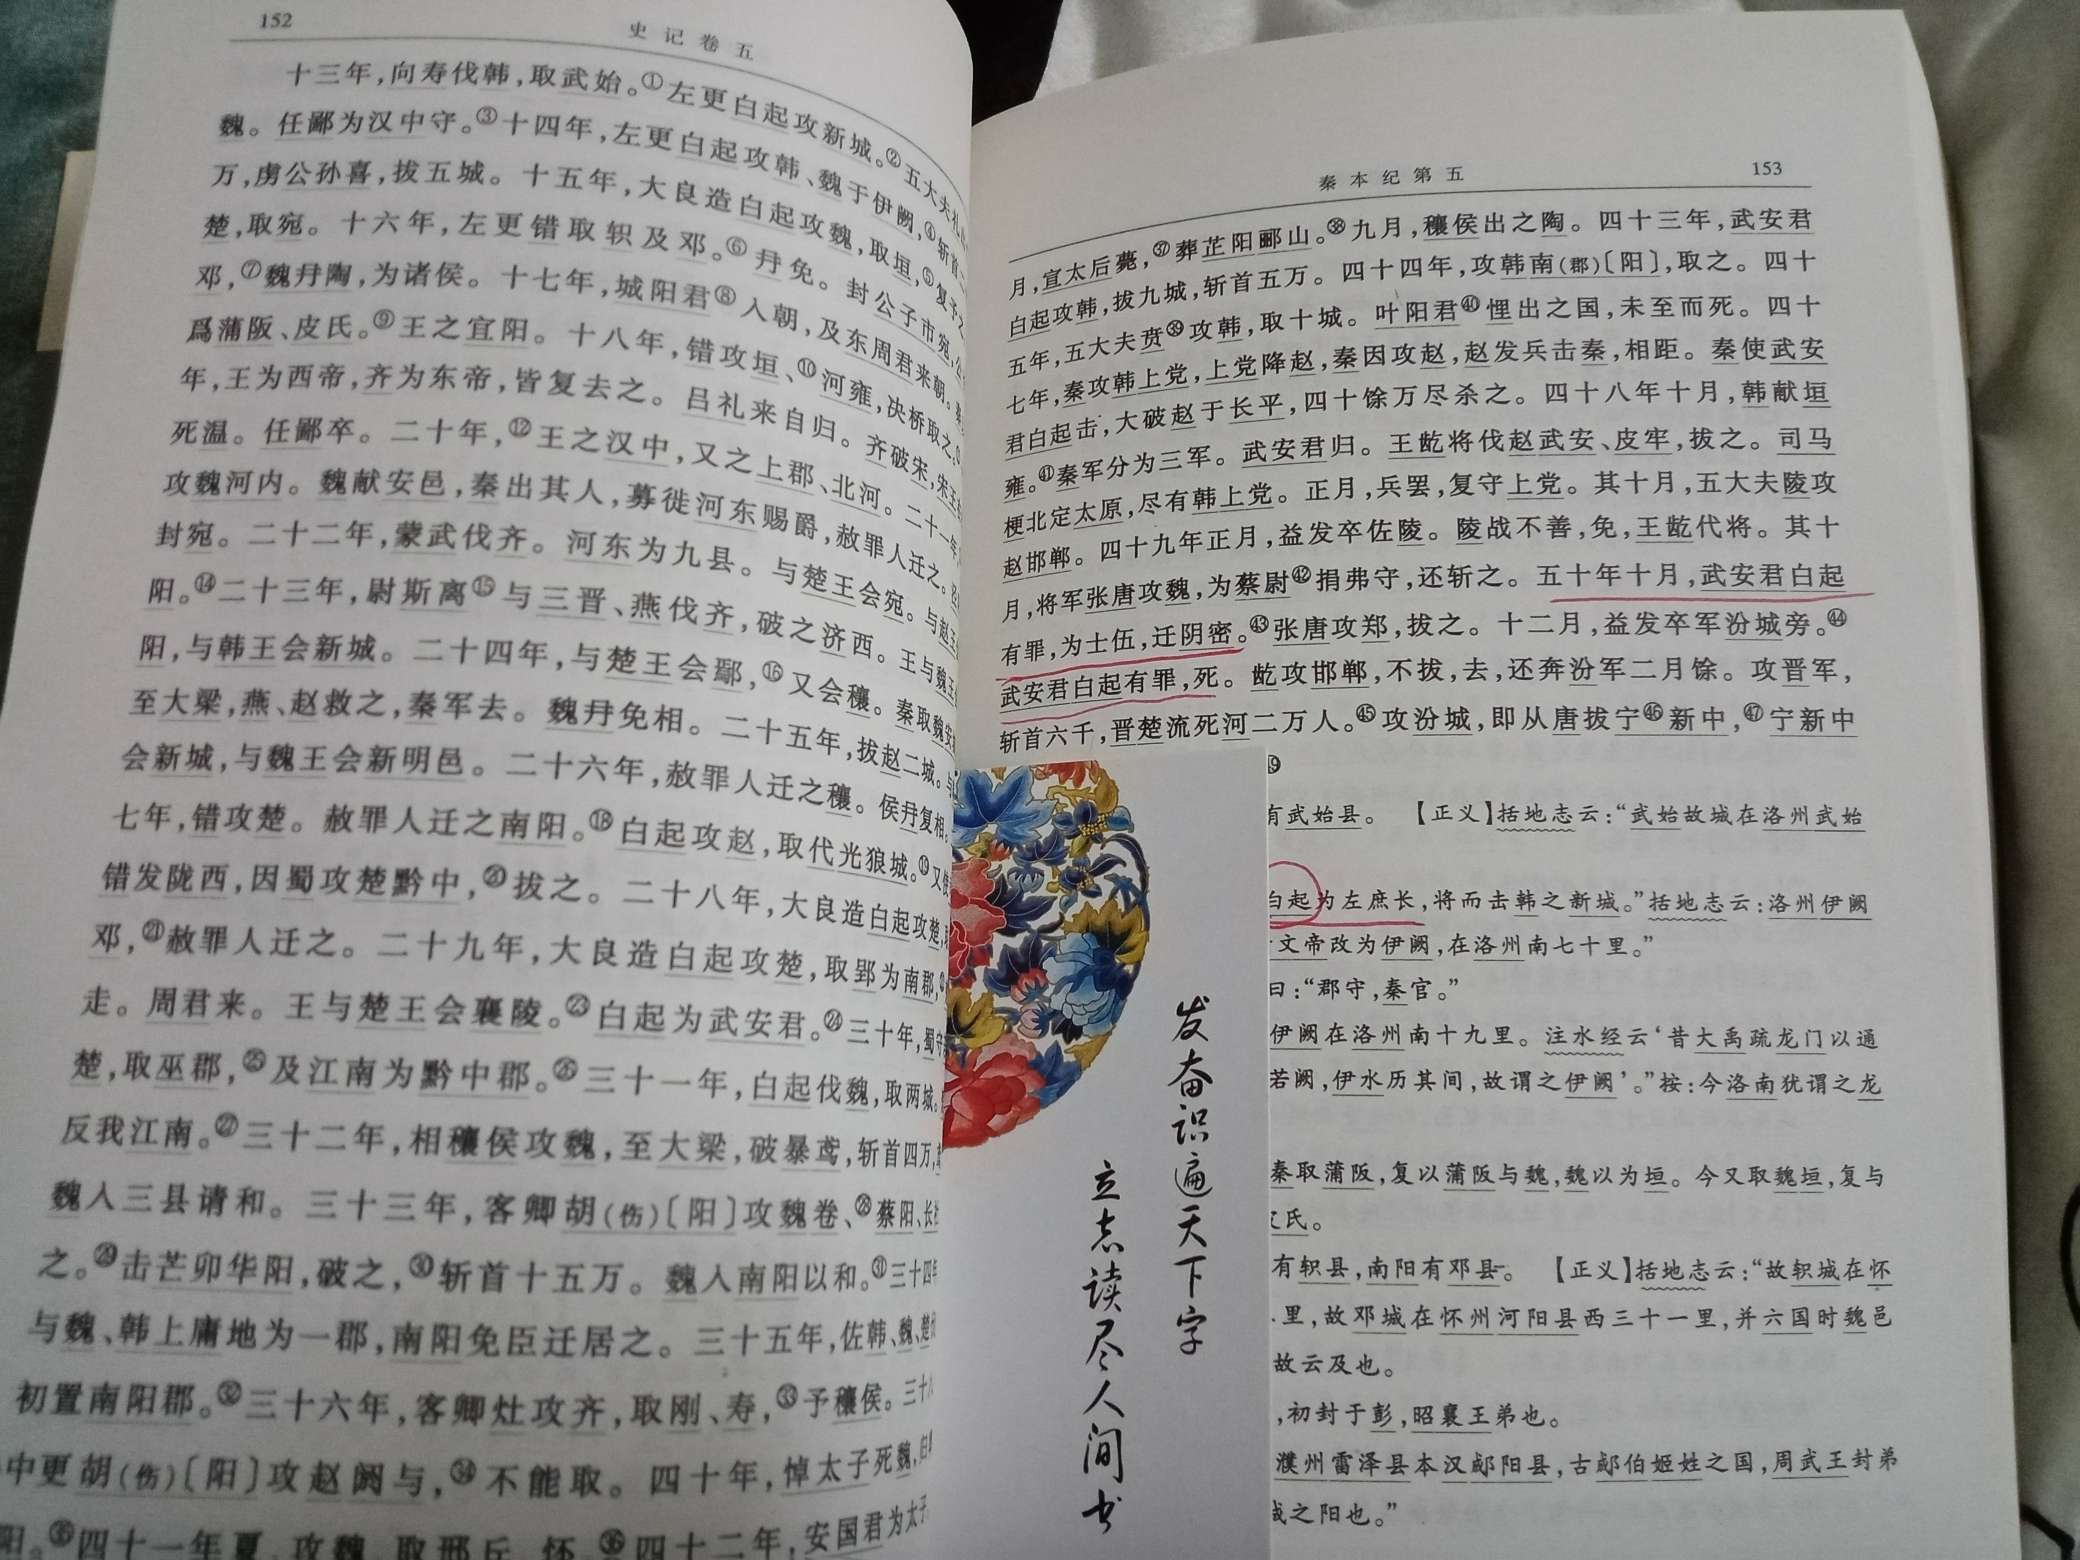 152
史记卷五
十三年，向寿伐韩，取武始。①左更白起攻新城。②五大夫礼
魏。任鄙为汉中守。③十四年，左更白起攻韩、魏于伊阙，④斩首
万，虏公孙喜，拔五城。十五年，大良造白起攻魏，取垣，⑤复予之
楚，取宛。十六年，左更错取轵及邓。⑥冉免。封公子市宛，公
邓，⑦魏冉陶，为诸侯。十七年，城阳君⑧入朝，及东周君来朝。
爲蒲阪、皮氏。⑨王之宜阳。十八年，错攻垣、⑩河雍，决桥取之。
年，王为西帝，齐为东帝，皆复去之。吕礼来自归。齐破宋，宋王
死温。任鄙卒。二十年，⑫王之汉中，又之上郡、北河。二十一年，
攻魏河内。魏献安邑，秦出其人，募徙河东赐爵，赦罪人迁之。
封宛。二十二年，蒙武伐齐。河东为九县。与楚王会宛。与赵王
阳。⑭二十三年，尉斯离⑮与三晋、燕伐齐，破之济西。王与魏王
阳，与韩王会新城。二十四年，与楚王会鄢，⑯又会穰。秦取魏安
至大梁，燕、赵救之，秦军去。魏冉免相。二十五年，拔赵二城。与
会新城，与魏王会新明邑。二十六年，赦罪人迁之穰。侯冉复相。
七年，错攻楚。赦罪人迁之南阳。⑱白起攻赵，取代光狼城。⑲又使
错发陇西，因蜀攻楚黔中，⑳拔之。二十八年，大良造白起攻楚，
邓，㉑赦罪人迁之。二十九年，大良造白起攻楚，取郢为南郡，
走。周君来。王与楚王会襄陵。㉓白起为武安君。㉔三十年，蜀守
楚，取巫郡，㉕及江南为黔中郡。㉖三十一年，白起伐魏，取两城。
反我江南。㉗三十二年，相穰侯攻魏，至大梁，破暴鸢，斩首四万，
魏入三县请和。三十三年，客卿胡(伤)〔阳〕攻魏卷、㉘蔡阳、长社
之。㉙击芒卯华阳，破之，㉚斩首十五万。魏入南阳以和。㉛三十四年
与魏、韩上庸地为一郡，南阳免臣迁居之。三十五年，佐韩、魏、楚
初置南阳郡。㉜三十六年，客卿灶攻齐，取刚、寿，㉝予穰侯。三十八
中更胡(伤)〔阳〕攻赵阏与，㉞不能取。四十年，悼太子死魏，归
阳。㉟四十一年夏，攻魏，取邢丘、怀。㊱四十二年，安国君为太子
秦本纪第五
153
月，宣太后薨，㊲葬芷阳郦山。㊳九月，穰侯出之陶。四十三年，武安君
白起攻韩，拔九城，斩首五万。四十四年，攻韩南(郡)〔阳〕，取之。四十
五年，五大夫贲㊴攻韩，取十城。叶阳君㊵悝出之国，未至而死。四十
七年，秦攻韩上党，上党降赵，秦因攻赵，赵发兵击秦，相距。秦使武安
君白起击，大破赵于长平，四十馀万尽杀之。四十八年十月，韩献垣
雍。㊶秦军分为三军。武安君归。王龁将伐赵武安、皮牢，拔之。司马
梗北定太原，尽有韩上党。正月，兵罢，复守上党。其十月，五大夫陵攻
赵邯郸。四十九年正月，益发卒佐陵。陵战不善，免，王龁代将。其十
月，将军张唐攻魏，为蔡尉㊷捐弗守，还斩之。五十年十月，武安君白起
有罪，为士伍，迁阴密。㊸张唐攻郑，拔之。十二月，益发卒军汾城旁。㊹
武安君白起有罪，死。龁攻邯郸，不拔，去，还奔汾军二月馀。攻晋军，
斩首六千，晋楚流死河二万人。㊺攻汾城，即从唐拔宁㊻新中，㊼宁新中
有武始县。 【正义】括地志云：“武始故城在洛州武始
白起为左庶长，将而击韩之新城。”括地志云：洛州伊阙
文帝改为伊阙，在洛州南七十里。”
曰：“郡守，秦官。”
伊阙在洛州南十九里。注水经云‘昔大禹疏龙门以通
若阙，伊水历其间，故谓之伊阙’。”按：今洛南犹谓之龙
秦取蒲阪，复以蒲阪与魏，魏以为垣。今又取魏垣，复与
皮氏。
有轵县，南阳有邓县。 【正义】括地志云：“故轵城在怀
里，故邓城在怀州河阳县西三十一里，并六国时魏邑
故云及也。
，初封于彭，昭襄王弟也。
濮州雷泽县本汉郕阳县，古郕伯姬姓之国，周武王封弟
之阳也。”
发奋识遍天下字
立志读尽人间书